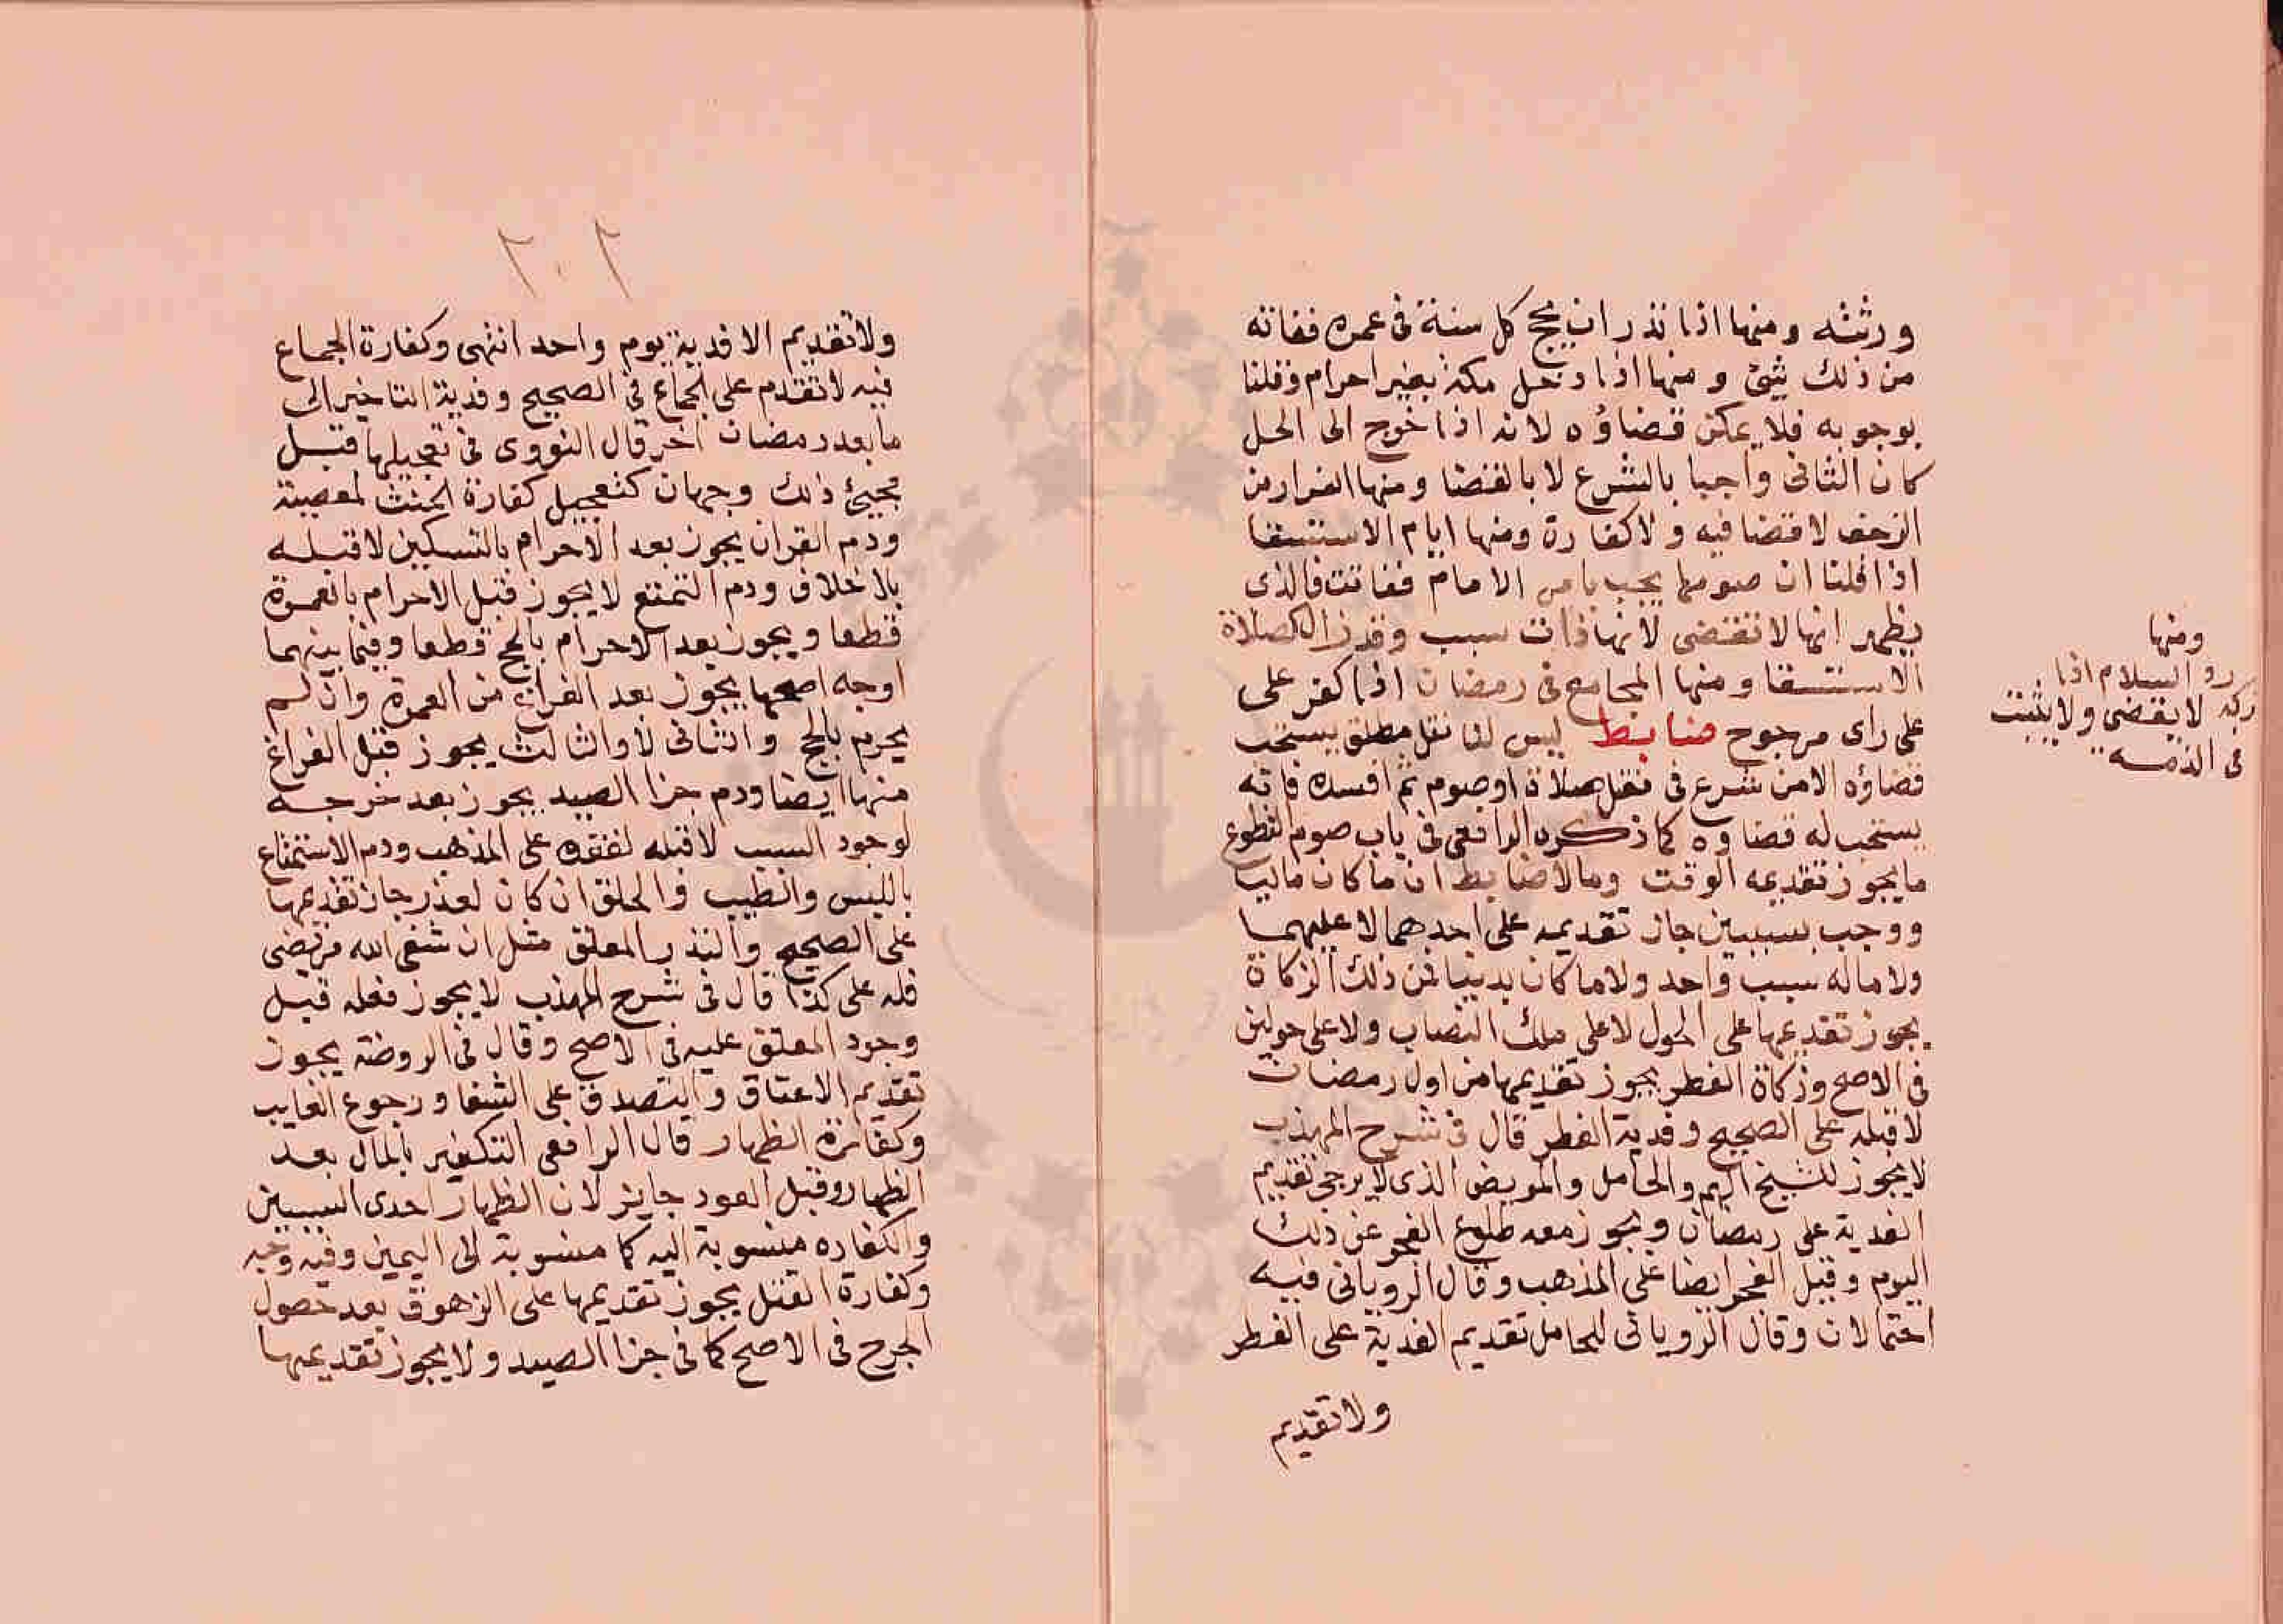 ورثته ومنها اذا نذر ان يحج كل سنة فى عمره ففاته
من ذلك شئ و منها اذا دخل مكة بغير احرام وقلنا
بوجوبه فلا يمكن قضاؤه لانه اذا خرج الى الحل
كان الثانى واجبا بالشرع لا بالقضا ومنها الفرار من
الزحف لا قضا فيه ولا كفارة ومنها ايام الاستسقا
اذا قلنا ان صومها يجب بامر الامام ففاتت فالذى
يظهر انها لا تقضى لانها ذات سبب وقد زال كصلاة
الاستسقا ومنها المجامع فى رمضان اذا كفر على
على راى مرجوح ضابط ليس لنا نفل مطلق يستحب
قضاؤه الا من شرع فى نفل صلاة او صوم ثم افسده فانه
يستحب له قضاوه كما ذكره الرافعى فى باب صوم التطوع
ما يجوز تقديمه الوقت ومالا ضابط ان ما كان ماليا
ووجب بسببين جاز تقديمه على احدهما لا عليهما
ولا ماله سبب واحد ولا ما كان بدنيا فمن ذلك الزكاة
يجوز تقديمها على الحول لا على ملك النصاب ولا على حولين
فى الاصح وزكاة الفطر يجوز تقديمها من اول رمضان
لا قبله على الصحيح وفدية الفطر قال فى شرح المهذب
لا يجوز للشيخ الهم والحامل والمريض الذى لا يرجى تقديم
الفدية على رمضان ويجوز معه طلوع الفجر عن ذلك
اليوم وقبل الفجر ايضا على المذهب وقال الرويانى فيه
احتمالان وقال الرويانى للحامل تقديم الفدية على الفطر
ولا تقديم
ومنها
رد السلام اذا
تركه لا يقضى ولا يثبت
فى الذمه
٢٠٢
ولا تقديم الا فدية يوم واحد انتهى وكفارة الجماع
فيه لا تقدم على الجماع فى الصحيح وفدية التاخير الى
ما بعد رمضان اخر قال النووى فى تعجيلها قبل
مجيئ ذلك وجهان كتعجيل كفارة الحنث لمعصية
ودم القران يجوز بعد الاحرام بالنسكين لا قبله
بلا خلاف ودم التمتع لا يجوز قبل الاحرام بالعمرة
قطعا ويجوز بعد الاحرام بالحج قطعا وفيما بينهما
اوجه اصحها يجوز بعد الفراغ من العمرة وان لم
يحرم بالحج والثانى لا والثالث يجوز قبل الفراغ
منها ايضا ودم جزا الصيد يجوز بعد جرحه
لوجود السبب لا قبله لفقده على المذهب ودم الاستمتاع
باللبس والطيب والحلق ان كان لعذر جاز تقديمها
على الصحيح والنذر المعلق مثل ان شفى الله مريضى
فلله على كذا قال فى شرح المهذب لا يجوز فعله قبل
وجود المعلق عليه فى الاصح وقال فى الروضة يجوز
تقديم الاعتاق والتصدق على الشفا ورجوع الغايب
وكفارة الظهار قال الرافعى التكفير بالمال بعد
الظهار وقبل العود جايز لان الظهار احدى السببين
والكفاره منسوبة اليه كما منسوبة الى اليمين وفيه وجه
وكفارة القتل يجوز تقديمها على الزهوق بعد حصول
الجرح فى الاصح كما فى جزا الصيد ولا يجوز تقديمها